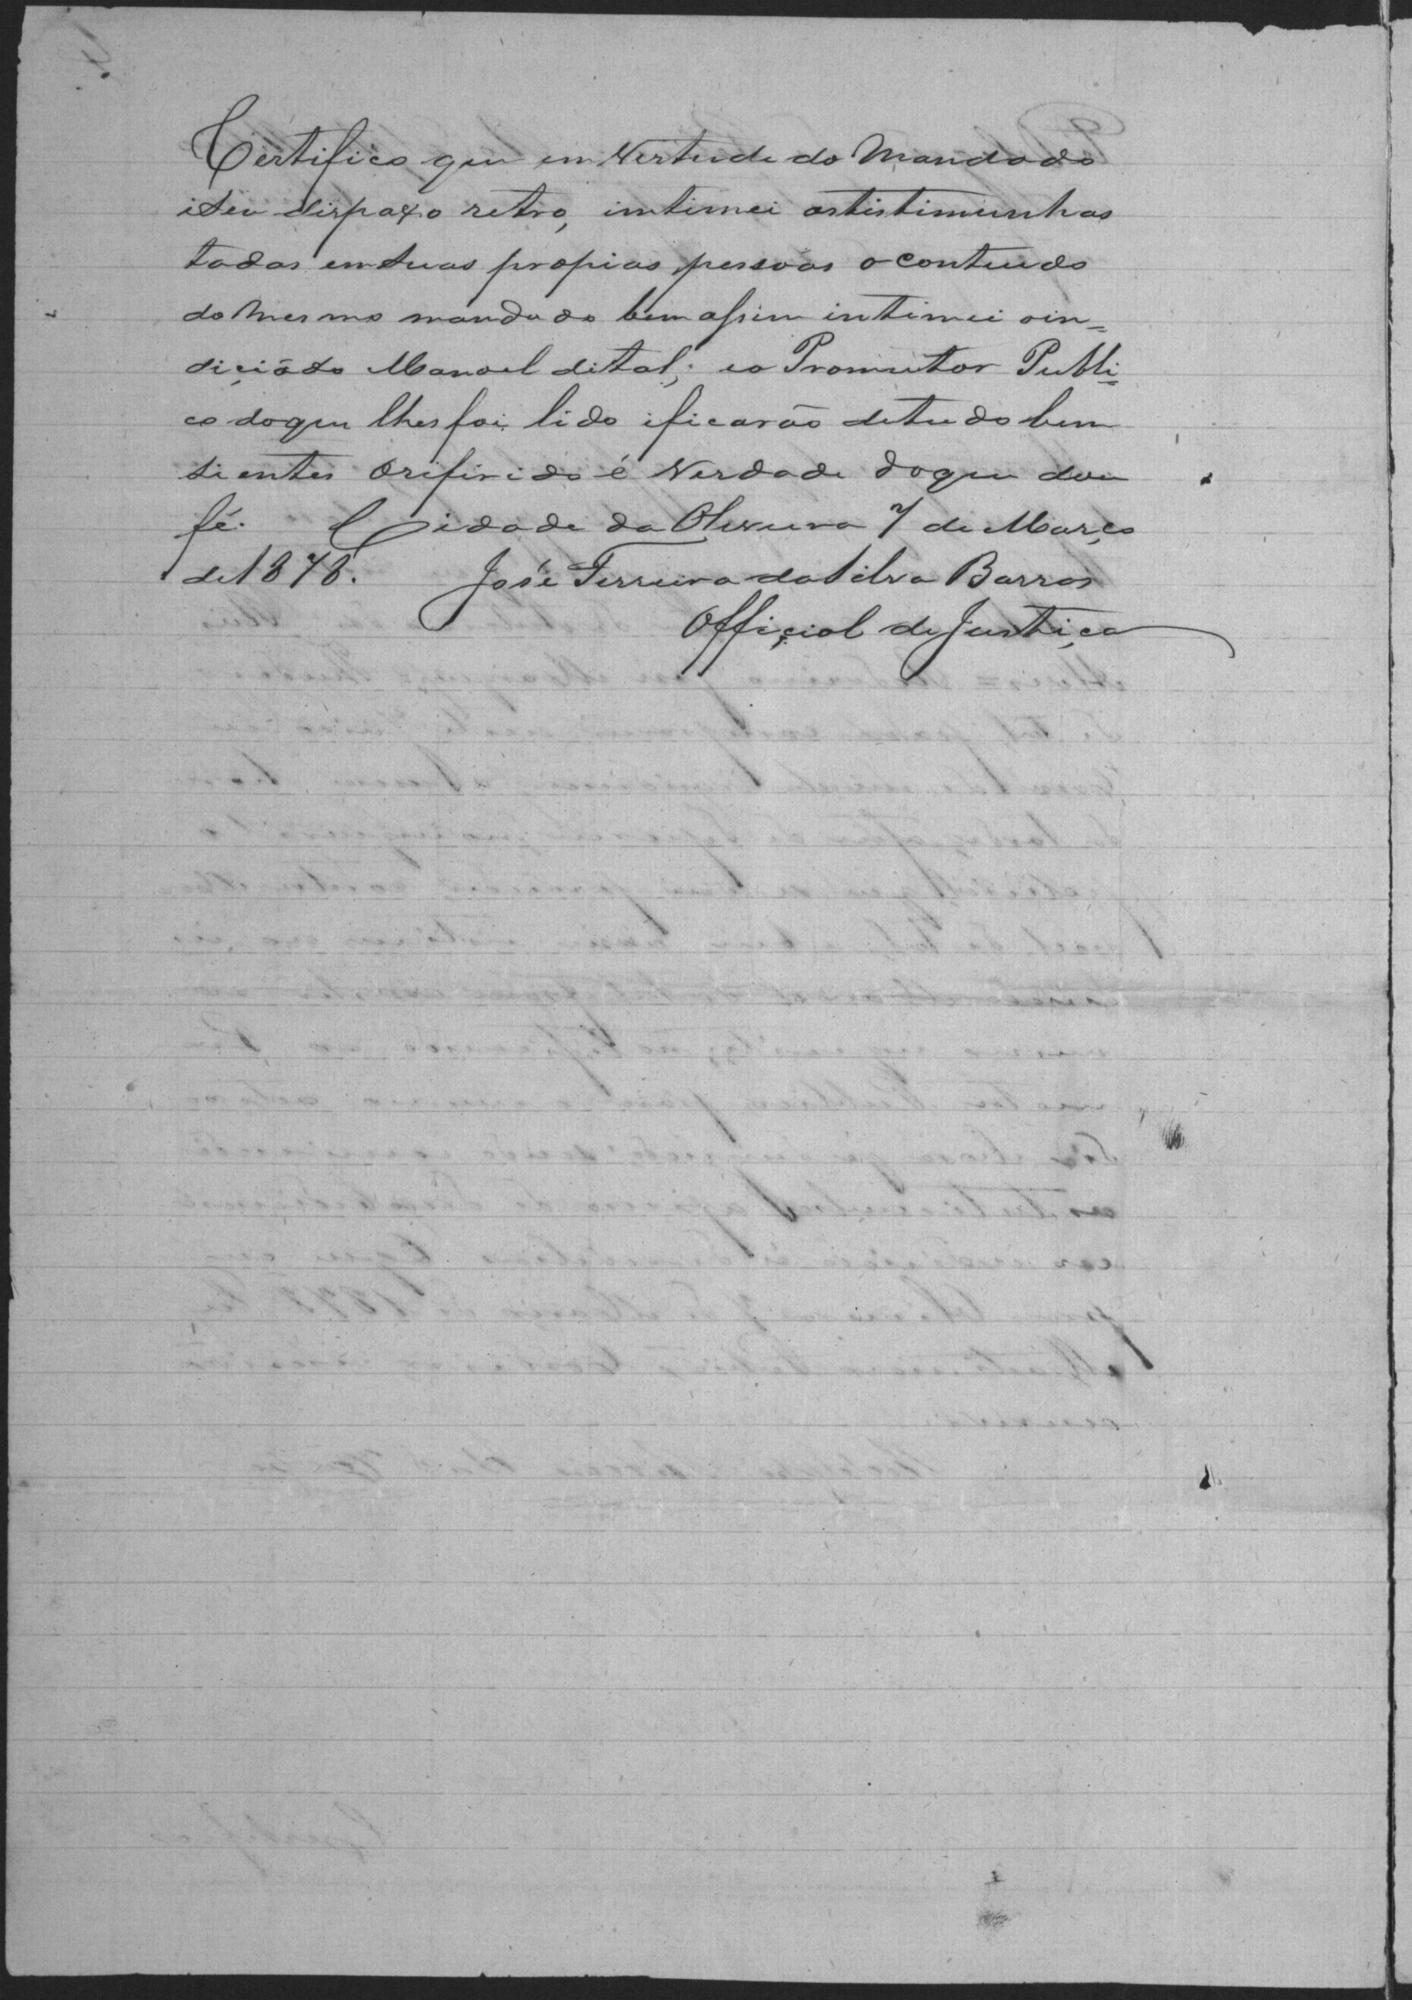 Certifico que em Vertude do Mandado
i Seu dispaxo retro, intimei astistimunhas
todas em Suas propias pessoas o conteudo
do Mesmo mandado bem assim intimei oin=
diciádo Manoel dital; eo Promutor Publi=
co doque lhes foi lido ificarão detudo bem
sientes Orifirido é Verdade doque dou
fé. Cidade da Oliveira 7 de Março
de 1878. José Ferreira da Silva Barros
Official de Justiça